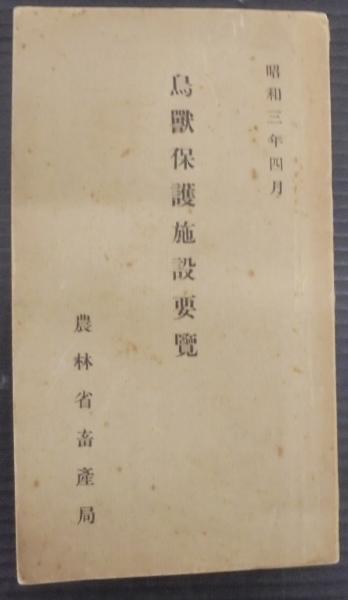 昭和三年四月
鳥獸保護施設要覽
農林省畜產局